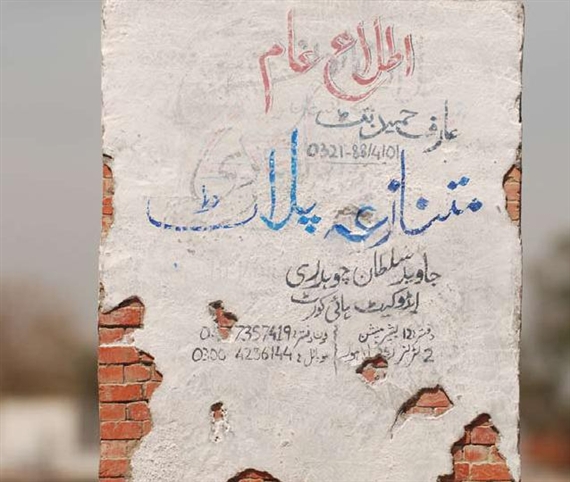 اطلاع عام
عارف حمید بٹ
0321-8814101
متنازعہ پلاٹ
جاوید سلطان چوہدری
ایڈوکیٹ ہائی کورٹ
دفتر: 12 فون دفتر: 7357419
2 ٹرنر روڈ لاہور موبائل: 0300 4236144